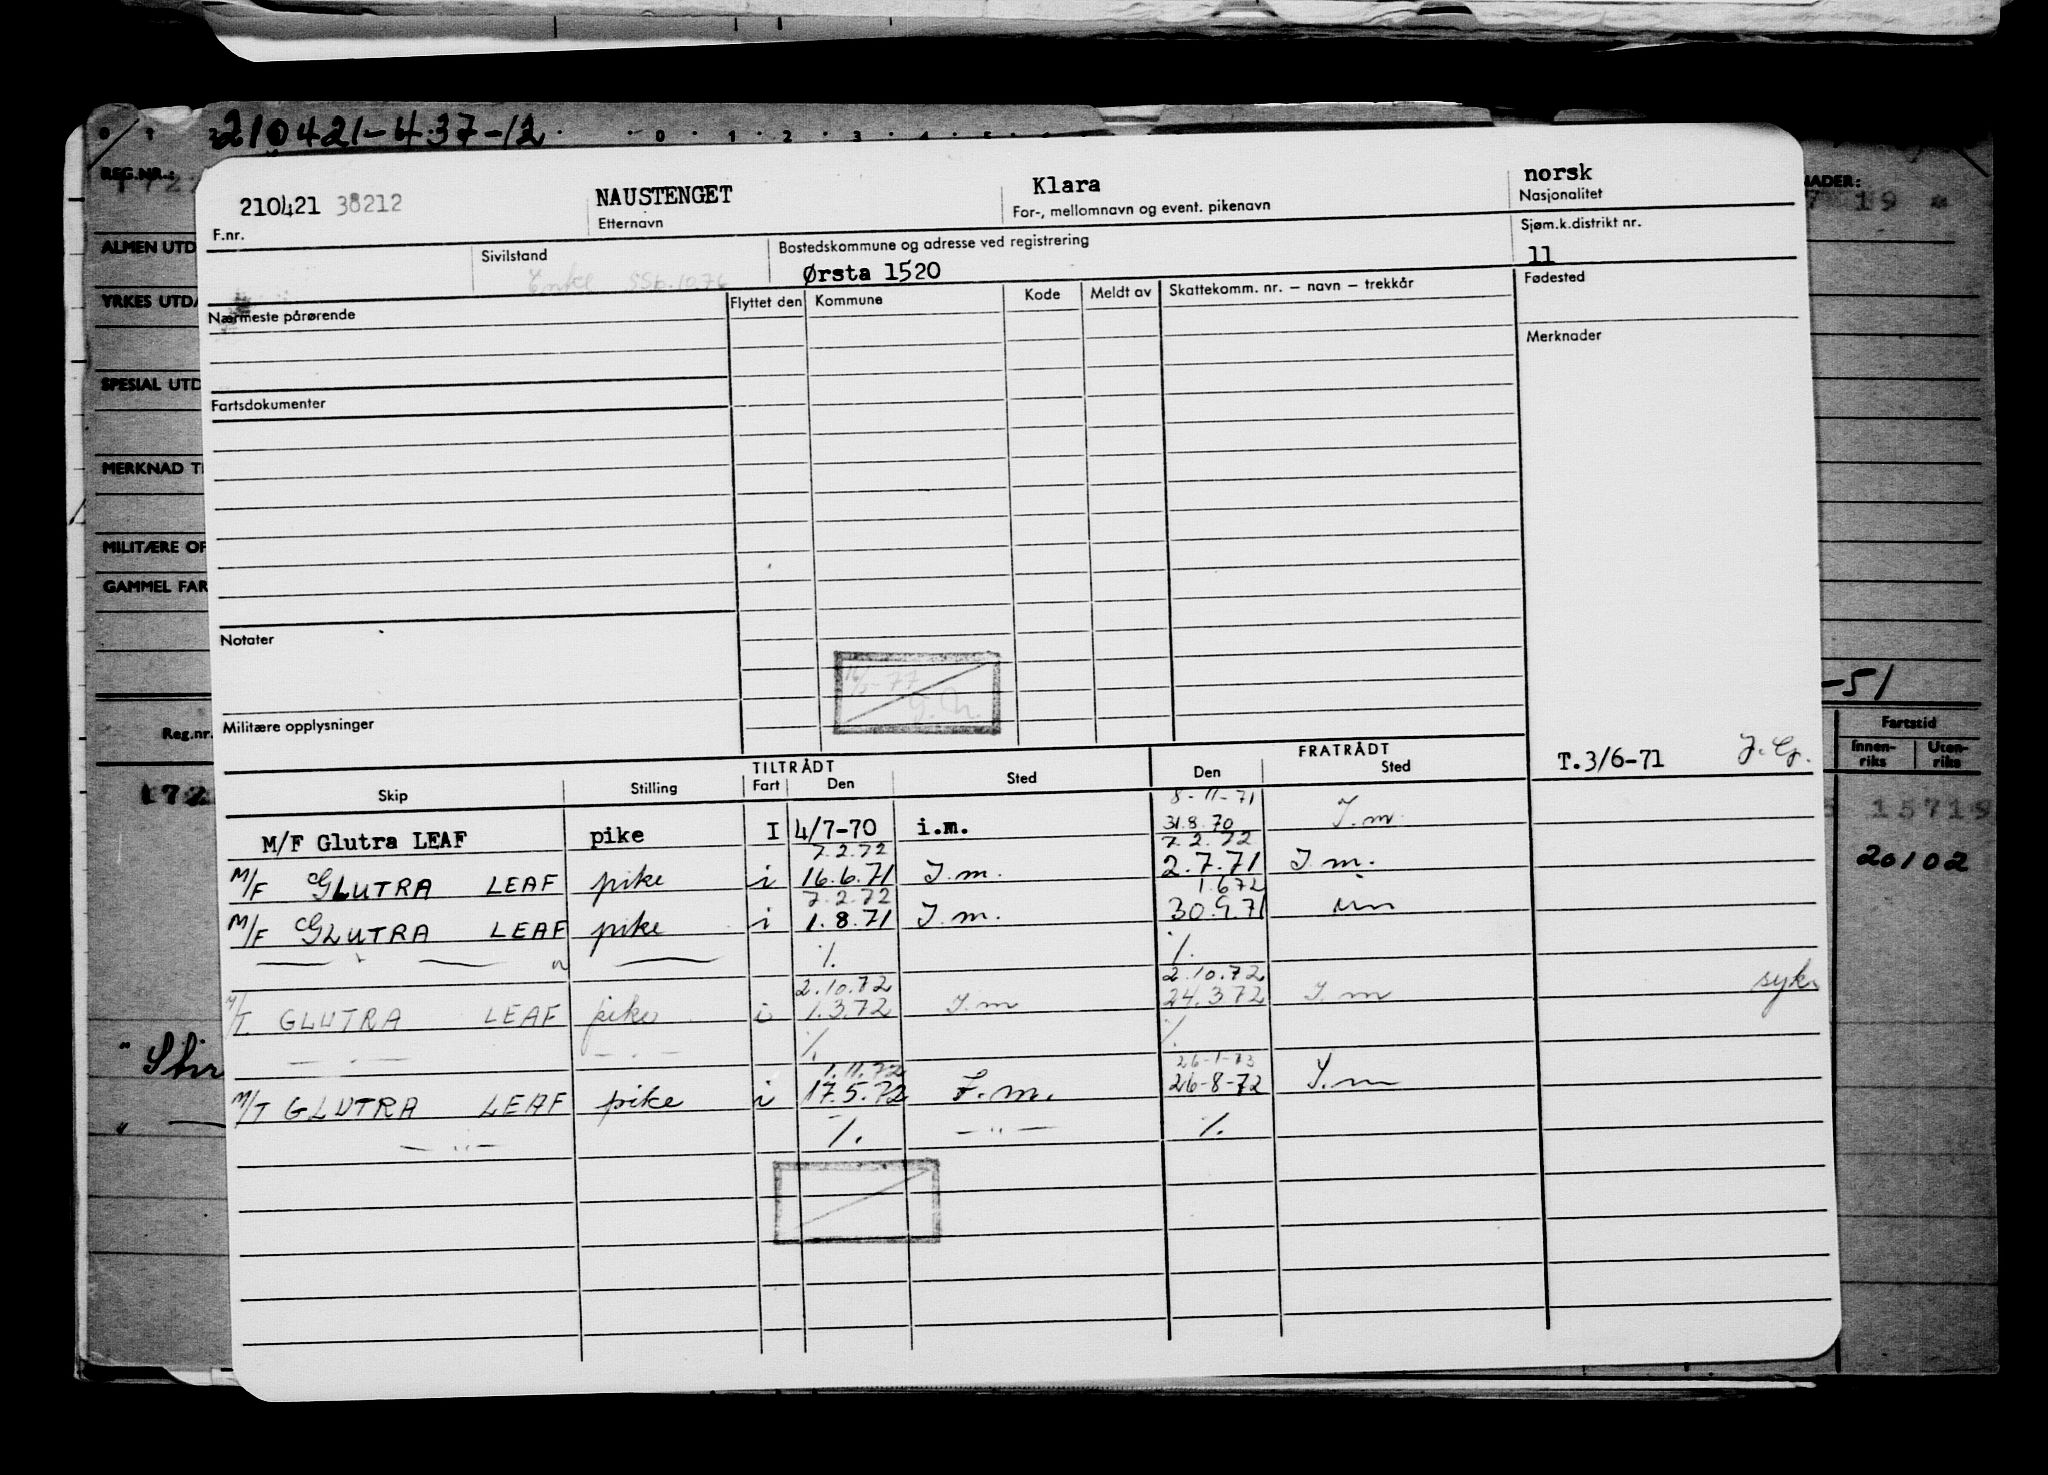 210421-4.37-12
REG.NR.:
210421 38212
F.nr.
NAUSTENGET
Etternavn
Klara
For-, mellomnavn og event. pikenavn
norsk
Nasjonalitet
ALMEN UTD
Sivilstand
Bostedskommune og adresse ved registrering
Ørsta 1520
Sjøm.k.distrikt nr.
11
YRKES UTDA
Nærmeste pårørende
Flyttet den
Kommune
Kode
Meldt av
Skattekomm. nr. – navn – trekkår
Fødested
Merknader
SPESIAL UTD
Fartsdokumenter
MERKNAD T
MILITÆRE OP
GAMMEL FAR
Notater
-77
-51
Militære opplysninger
Reg.nr.
Fartstid
Innen-riks
Uten-riks
TILTRÅDT
FRATRÅDT
T.3/6-71
Skip
Stilling
Fart
Den
Sted
Den
Sted
8-11-71
M/F Glutra LEAF pike I 4/7-70 i.m. 31.8.70 I.m.
15719
7.2.72 7.2.72
M/F GLUTRA LEAF pike i 16.6.71 I.m. 2.7.71 I.m.
20102
7.2.72 1.6.72
M/F GLUTRA LEAF pike i 1.8.71 I.m. 30.9.71 im
%. %.
2.10.72 2.10.72
M/T. GLUTRA LEAF pike i 1.3.72 I.m 24.3.72 I.m syk.
%. %.
1.11.72 26-1-73
M/T GLUTRA LEAF pike i 17.5.72 I.m. 26-8-72 I.m
-"- %. -"- %.